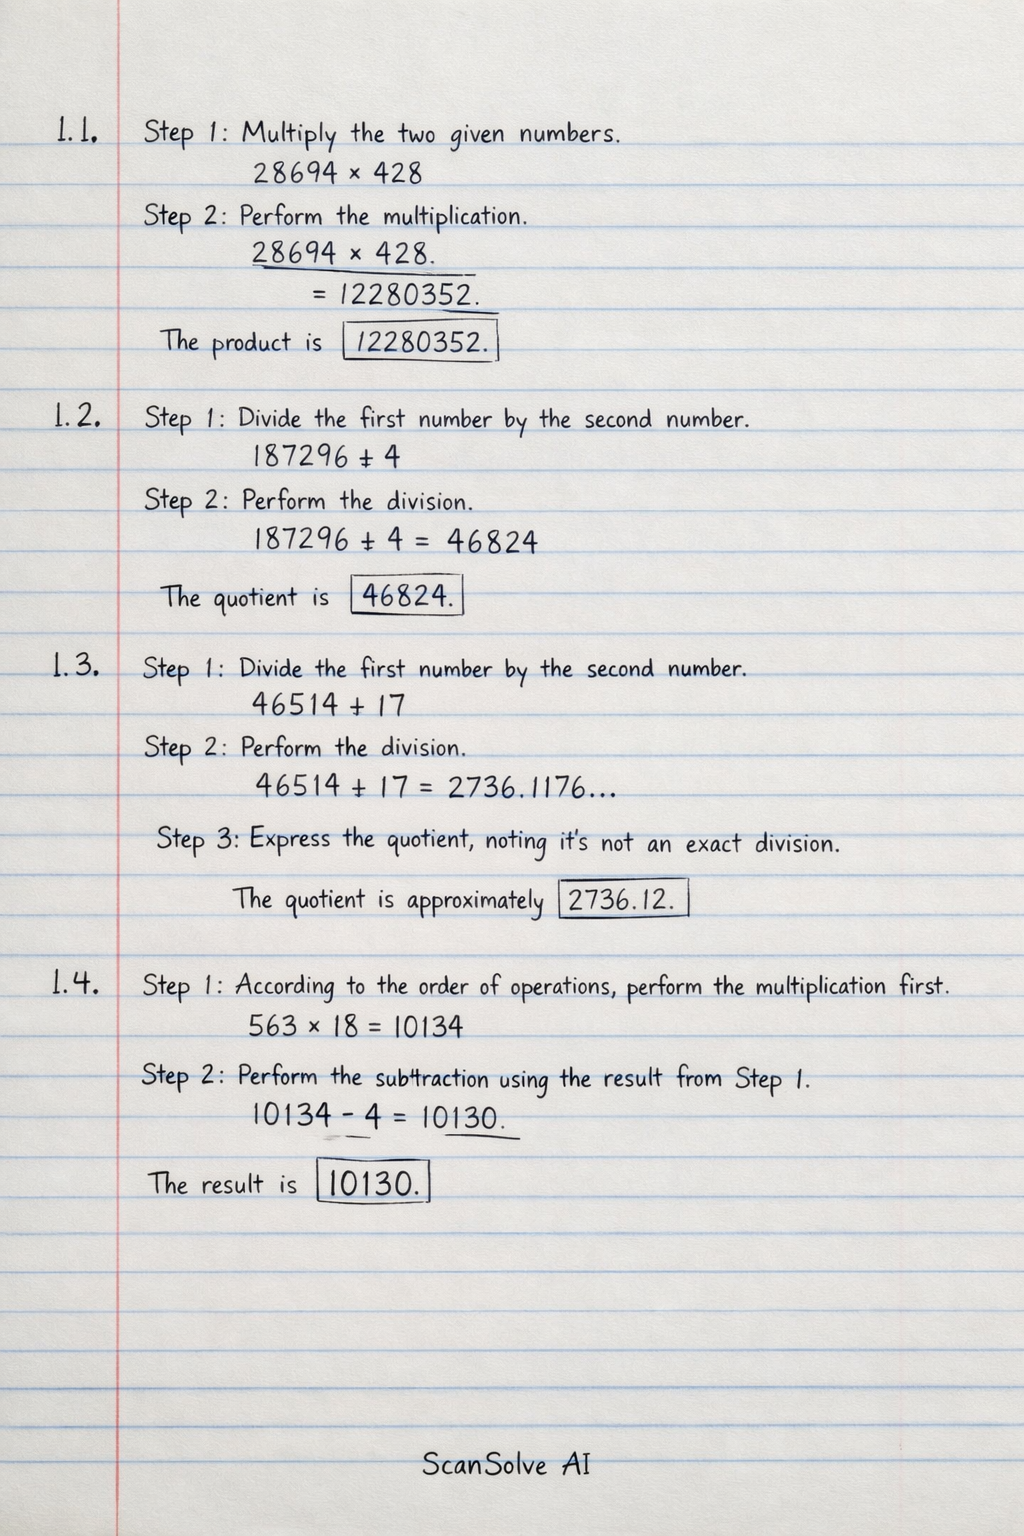 1.1. Step 1: Multiply the two given numbers.
28694 × 428
Step 2: Perform the multiplication.
28694 × 428.
= 12280352.
The product is 12280352.
1.2. Step 1: Divide the first number by the second number.
187296 ÷ 4
Step 2: Perform the division.
187296 ÷ 4 = 46824
The quotient is 46824.
1.3. Step 1: Divide the first number by the second number.
46514 ÷ 17
Step 2: Perform the division.
46514 ÷ 17 = 2736.1176...
Step 3: Express the quotient, noting it's not an exact division.
The quotient is approximately 2736.12.
1.4. Step 1: According to the order of operations, perform the multiplication first.
563 × 18 = 10134
Step 2: Perform the subtraction using the result from Step 1.
10134 - 4 = 10130.
The result is 10130.
ScanSolve AI